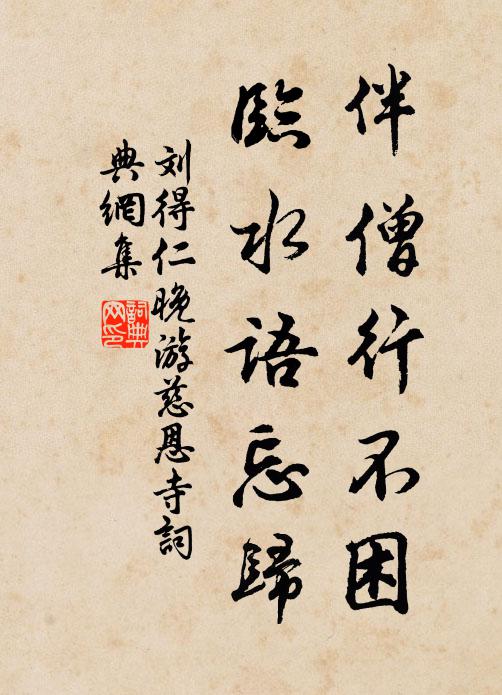 伴僧行不困
臨水語忘歸
刘得仁晚游慈恩寺詞
典網集
詞典
网印